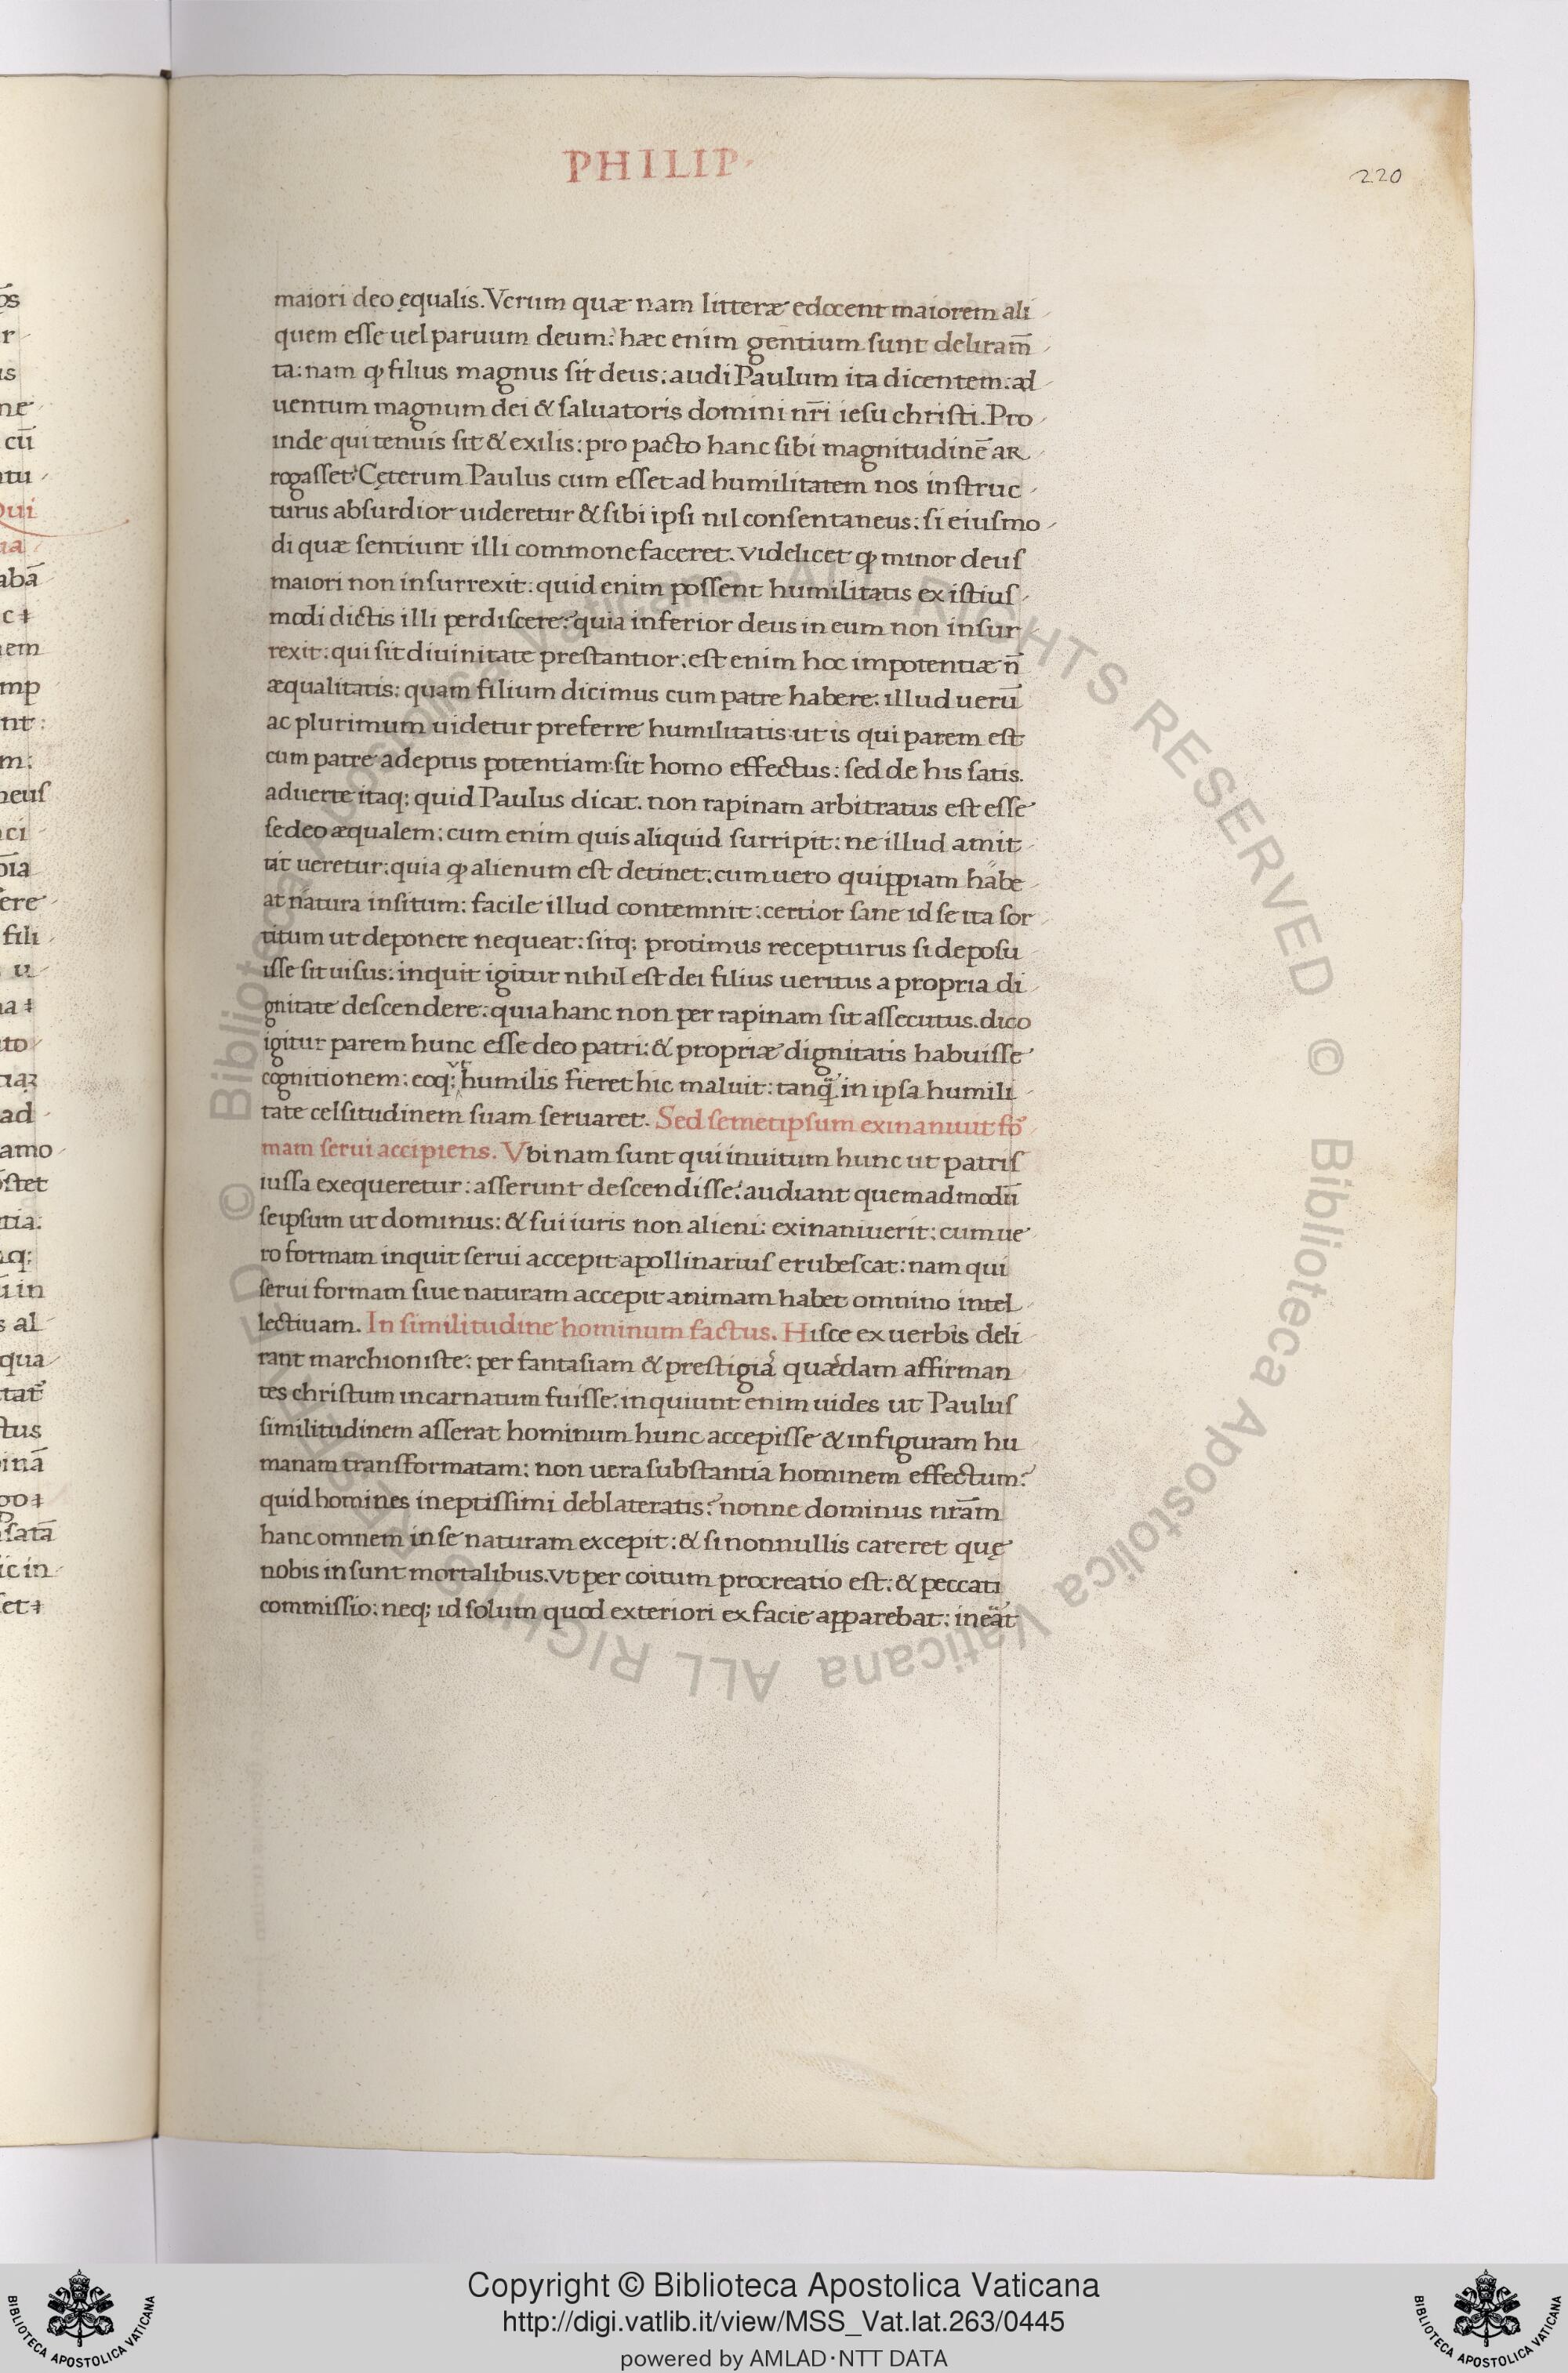 PHILIP·
220
maiori deo ęqualis. Verum quæ nam litteræ edocent maiorem ali
quem esse uel paruum deum? hæc enim gentium sunt deliram̅
ta: nam ꝙ filius magnus sit deus: audi Paulum ita dicentem. ad
uentum magnum dei & saluatoris domini nr̅i iesu christi. Pro
inde qui tenuis sit & exilis: pro pacto hanc sibi magnitudine̅ ar
rogasset? Cęterum Paulus cum esset ad humilitatem nos instruc
turus absurdior uideretur & sibi ipsi nil consentaneus: si eiusmo
di quæ sentiunt illi commonefaceret. videlicet ꝙ minor deus
maiori non insurrexit: quid enim possent humilitatis ex istius
modi dictis illi perdiscere? quia inferior deus in eum non insur
rexit: qui sit diuinitate prestantior: est enim hoc impotentiæ n̅
æqualitatis: quam filium dicimus cum patre habere: illud ueru̅
ac plurimum uidetur preferre humilitatis: ut is qui parem est
cum patre adeptus potentiam: sit homo effectus: sed de his satis.
aduerte itaq; quid Paulus dicat. non rapinam arbitratus est esse
se deo æqualem: cum enim quis aliquid surripit: ne illud amit
tit ueretur: quia ꝙ alienum est detinet: cum uero quippiam habe
at natura insitum: facile illud contemnit: certior sane id se ita sor
titum ut deponere nequeat: sitq; protimus recepturus si deposu
isse sit uisus: inquit igitur nihil est dei filius ueritus a propria di
gnitate descendere: quia hanc non per rapinam sit assecutus. dico
igitur parem hunc esse deo patri: & propriæ dignitatis habuisse
cognitionem: eoq; vt humilis fieret hic maluit: tanq̃ in ipsa humili
tate celsitudinem suam seruaret. Sed semetipsum exinaniuit for
mam serui accipiens. Vbi nam sunt qui inuitum hunc ut patris
iussa exequeretur: asserunt descendisse? audiant quemadmodu̅
seipsum ut dominus: & sui iuris non alieni: exinaniuerit: cum ue
ro formam inquit serui accepit apollinarius erubescat: nam qui
serui formam siue naturam accepit animam habet omnino intel
lectiuam. In similitudine hominum factus. Hisce ex uerbis deli
rant marchioniste: per fantasiam & prestigia quædam affirman
tes christum incarnatum fuisse: inquiunt enim uides ut Paulus
similitudinem asserat hominum hunc accepisse & in figuram hu
manam transformatam: non uera substantia hominem effectum?
quid homines ineptissimi deblateratis? nonne dominus nr̅am
hanc omnem in se naturam excepit: & si nonnullis careret quę
nobis insunt mortalibus. vt per coitum procreatio est: & peccati
commissio: neq; id solum quod exteriori ex facie apparebat: inerat
© Biblioteca Apostolica Vaticana ALL RIGHTS RESERVED © Biblioteca Apostolica Vaticana ALL RIGHTS RESERVED
Copyright © Biblioteca Apostolica Vaticana
http://digi.vatlib.it/view/MSS_Vat.lat.263/0445
powered by AMLAD·NTT DATA
BIBLIOTECA APOSTOLICA VATICANA
BIBLIOTECA APOSTOLICA VATICANA